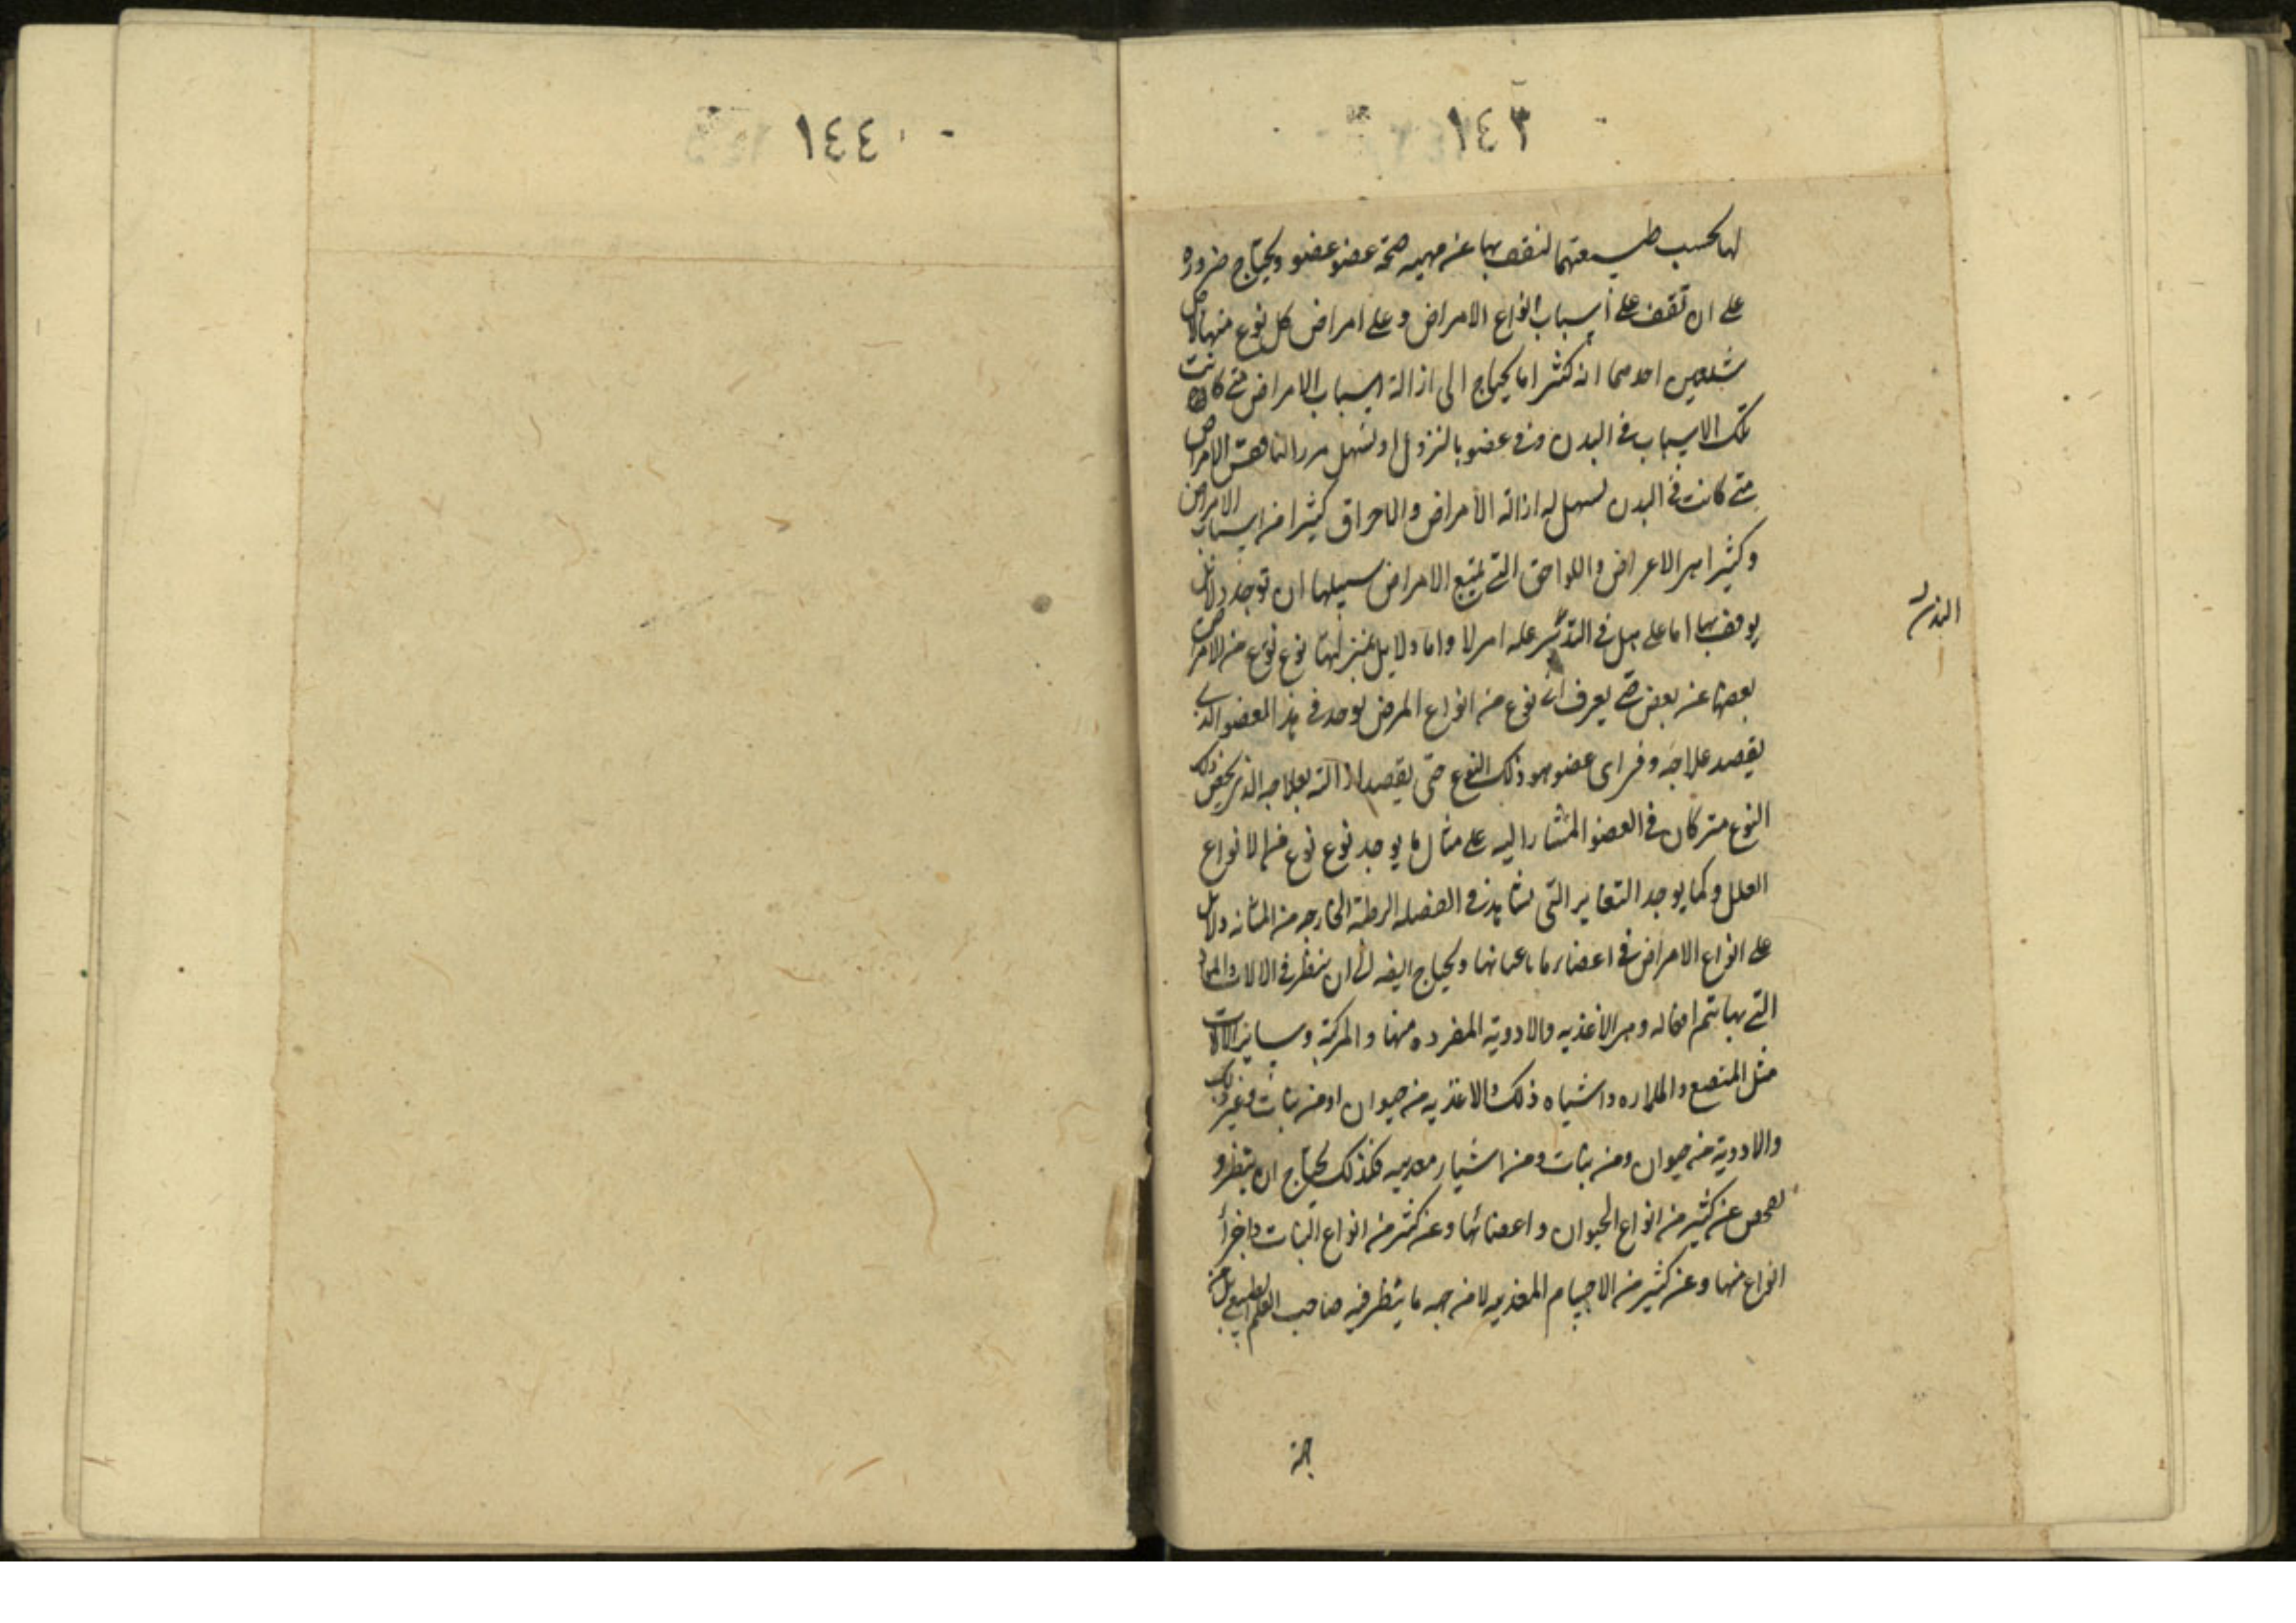 ١٤٣
لها بحسب طبيعتهما لنقف بها عن مهيه صحة عضو عضو ويحتاج ضروره
على ان تقف على أسباب انواع الامراض وعلى امراض كل نوع منها لا
احدهما انه كثيرا ما يحتاج الى ازالة اسباب الامراض متى كانت
تلك الاسباب فى البدن وفى عضو الامراض
متى كانت فى البدن لسهل له ازالة الأمراض كثيرا من اسباب الامراض
وكثيرا من الاعراض واللواحق التى تتبع الامراض سبيلها ان توجد دلائل
يوقف بها اما على هل فى عله ام لا واما دلايل نوع نوع من الامراض
بعضها عن بعض حتى يعرف اى نوع من انواع المرض يوجد فى هذا العضو الذى
يقصد علاجه وفى اى عضو هو ذلك النوع حتى يقصد ازالته بعلاجه الذى يخص ذلك
النوع متى كان فى العضو المشار اليه على مثال ما يوجد نوع نوع من الانواع
العلل وكما يوجد التغاير التى تشاهد فى الفضله الرطبة الخارجه من المثانه دلائل
على انواع الامراض فى اعضاء ما باعيانها ويحتاج ايضه الى ان ينظر فى الالات والمواد
التى بها يتم افعاله وهى الاغذيه والادوية المفرده منها والمركبة وساير الالات
مثل المبضع واشباه ذلك والاغذيه من حيوان او من نبات وغير ذلك
والادوية من حيوان ومن نبات ومن اشياء معدنيه فلذلك يحتاج ان ينظر و
يفحص عن كثير من انواع الحيوان واعضائها وعن كثير من انواع النبات واجزأ
انواع منها وعن كثير من الاجسام المعدنيه لا من جهه ما ينظر فيه صاحب العلم الطبيعى بل من
البدن
جهة
١٤٤